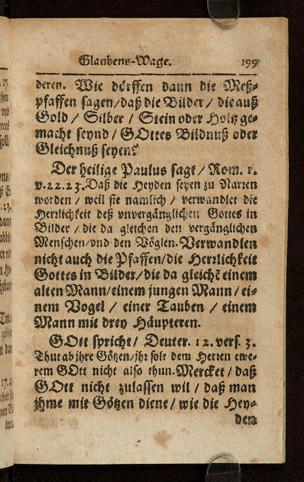 Glaubens-Wage. 199
deren. Wie dörffen dann die Meß-
pfaffen sagen / daß die Bilder / die auß
Gold / Silber / Stein oder Holtz ge-
macht seynd / GOttes Bildnuß oder
Gleichnuß seyen?
Der heilige Paulus sagt / Rom. 1.
v. 22. 23. Daß die Heyden seyen zu Narren
worden / weil sie namlich / verwandlet die
Herrlichkeit deß unvergänglichen Gottes in
Bilder / die da gleichen den vergänglichen
Menschen / und den Vöglen. Verwandlen
nicht auch die Pfaffen / die Herrlichkeit
Gottes in Bilder / die da gleichē einem
alten Mann / einem jungen Mann / ei-
nem Vogel / einer Tauben / einem
Mann mit drey Häupteren.
GOtt spricht / Deuter. 12. vers. 3.
Thut ab jhre Götzen / jhr solt dem Herren ewe-
rem GOtt nicht also thun. Mercket / daß
GOtt nicht zulassen wil / daß man
jhme mit Götzen diene / wie die Hey-
den